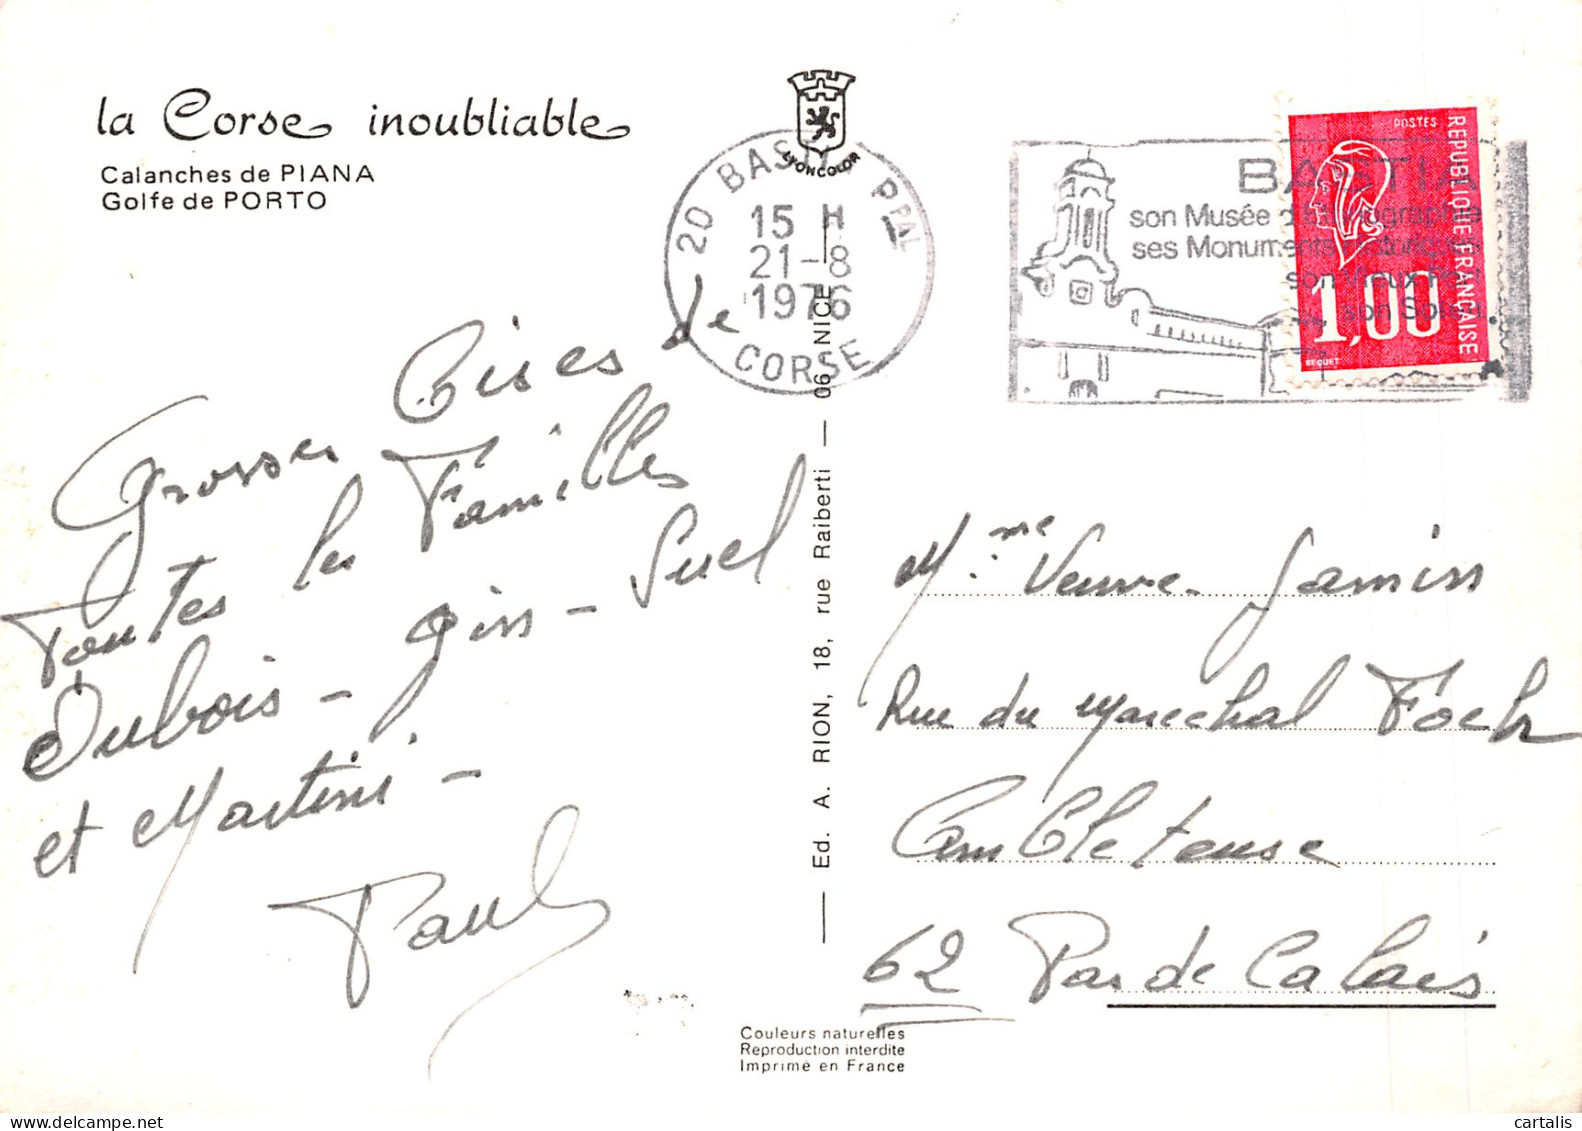 la Corse inoubliable
Calanches de PIANA
Golfe de PORTO
LYONCOLOR
20 BASTIA PPAL
15 H
21-8
1976
CORSE
BASTIA
son Musée d'Ethnographie
ses Monuments historiques
son Vieux Port
son Soleil
POSTES
REPUBLIQUE FRANÇAISE
1,00
BEQUET
Grosses Bises de
Toutes les Familles
Dubois - Gin - Suel
et Martini -
Paul
Ed. A. RION, 18, rue Raiberti — 06 NICE
Mme Veuve Jamin
Rue du Marechal Foch
Ambleteuse
62 Pas de Calais
Couleurs naturelles
Reproduction interdite
Imprimé en France
cartalis